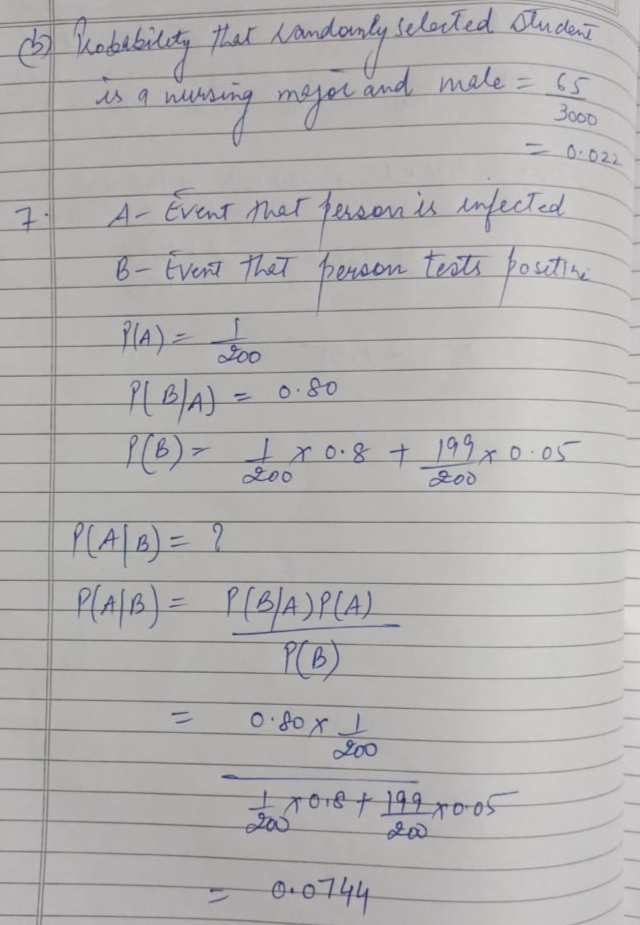 (b) Probability that randomly selected student
is a nursing major and male = 65/3000
= 0.022
7. A - Event that person is infected
B - Event that person tests positive
P(A) = 1/200
P(B/A) = 0.80
P(B) = 1/200 x 0.8 + 199/200 x 0.05
P(A|B) = ?
P(A|B) = P(B/A)P(A)
P(B)
= 0.80 x 1/200
1/200 x 0.8 + 199/200 x 0.05
= 0.0744